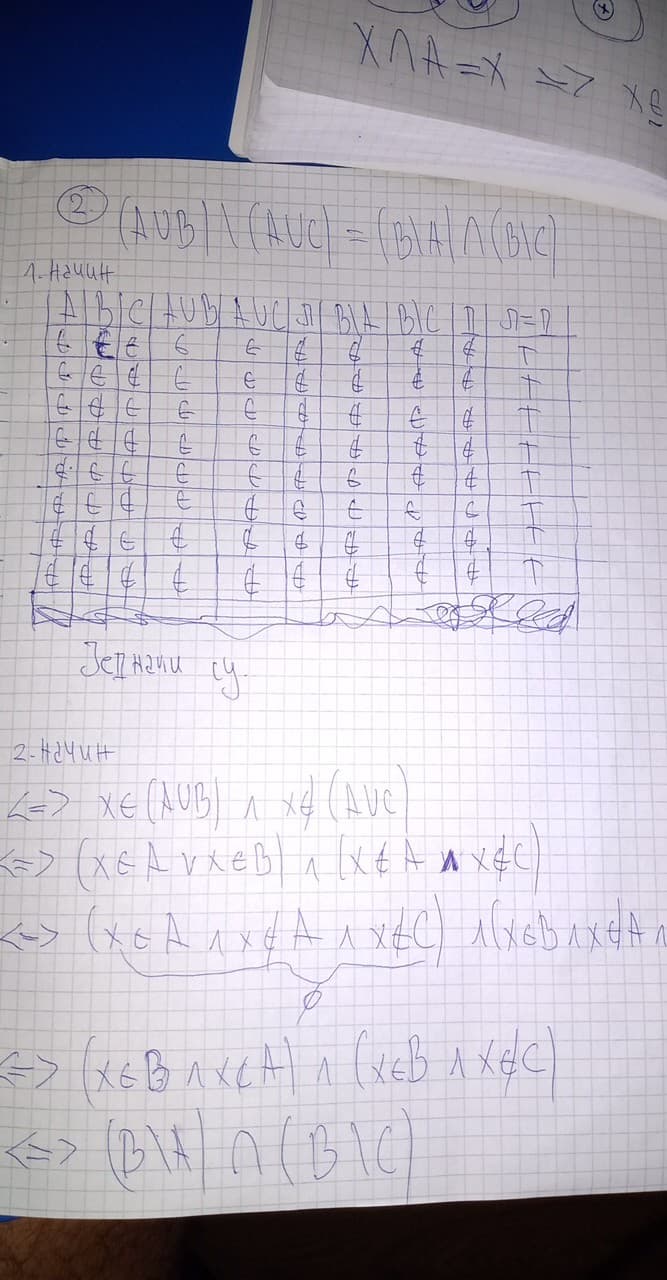 X∩A=X => X⊆
2. (A∪B)\(A∪C)=(B\A)∩(B\C)
1. Начин
A B C A∪B A∪C Л B\A B\C Д Л=Д
∈ ∈ ∈ ∈ ∈ ∉ ∉ ∉ ∉ T
∈ ∈ ∉ ∈ ∈ ∉ ∉ ∉ ∉ T
∈ ∉ ∈ ∈ ∈ ∉ ∉ ∈ ∉ T
∈ ∉ ∉ ∈ ∈ ∉ ∉ ∉ ∉ T
∉ ∈ ∈ ∈ ∈ ∉ ∈ ∉ ∉ T
∉ ∈ ∉ ∈ ∉ ∈ ∈ ∈ ∈ T
∉ ∉ ∈ ∉ ∉ ∉ ∉ ∉ T
∉ ∉ ∉ ∉ ∉ ∉ ∉ ∉ ∉ T
Једнаки су.
2. Начин
<=> X∈(A∪B) ∧ X∉(A∪C)
<=> (X∈A ∨ X∈B) ∧ (X∉A ∧ X∉C)
<=> (X∈A ∧ X∉A ∧ X∉C) ∧ (X∈B ∧ X∉A ∧
∅
<=> (X∈B ∧ X∉A) ∧ (X∈B ∧ X∉C)
<=> (B\A) ∩ (B\C)